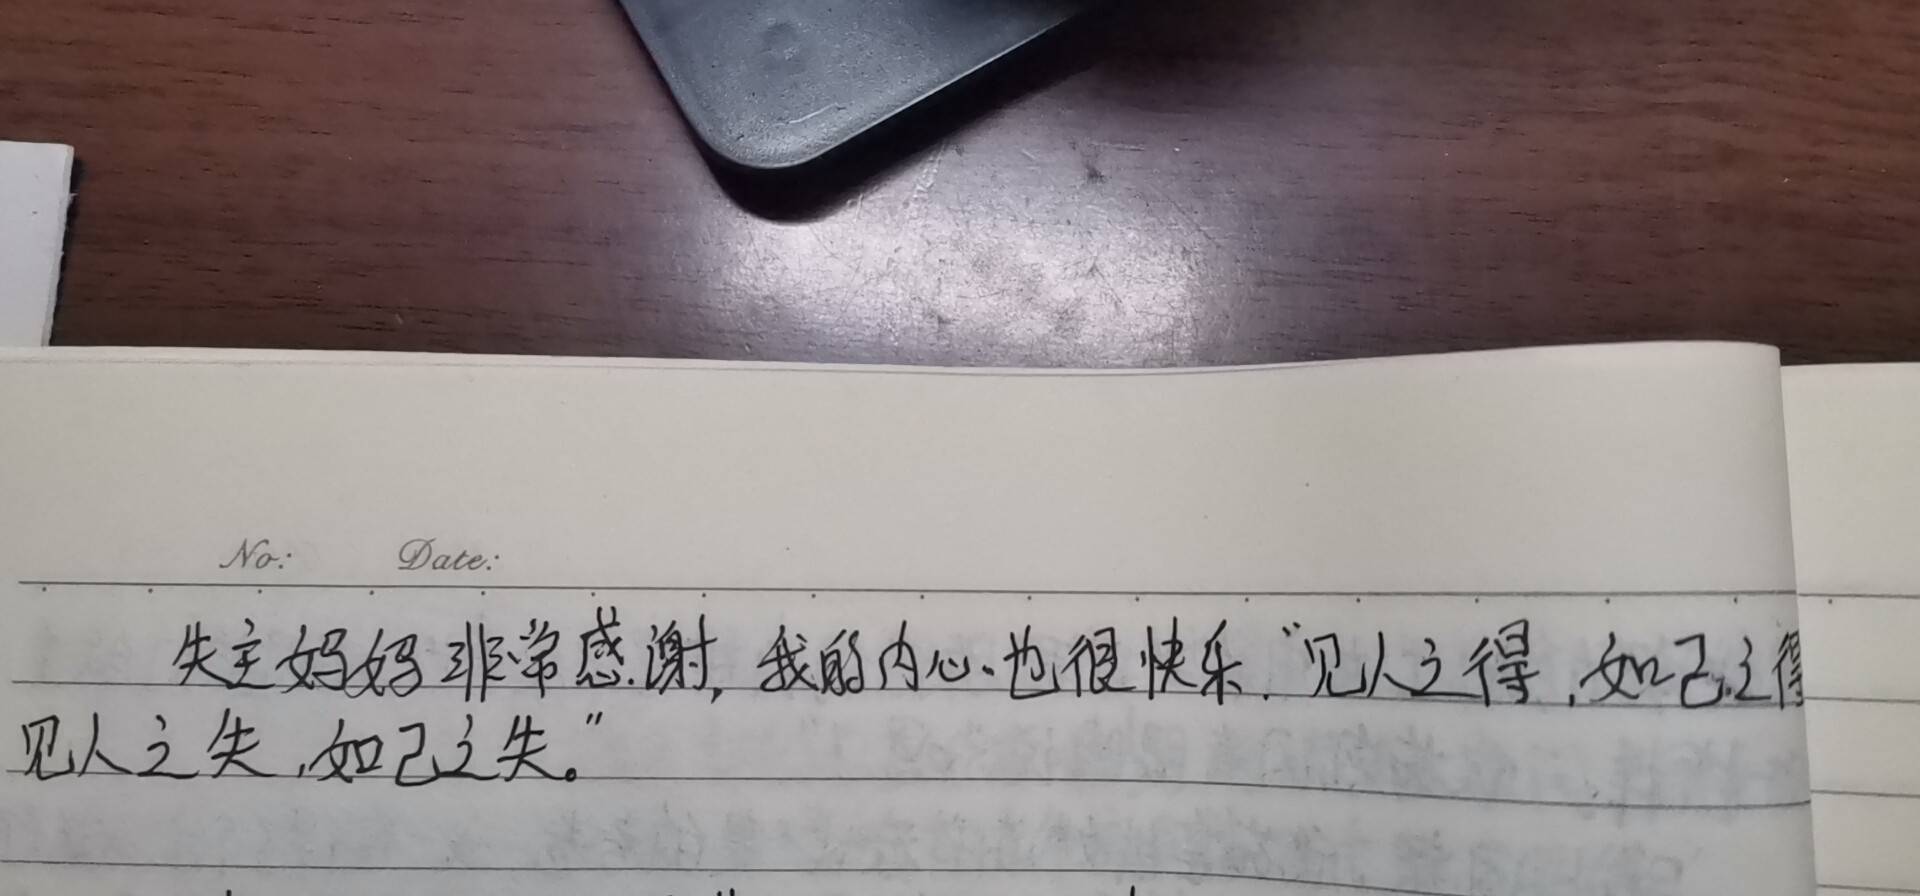 No: Date:
失主妈妈非常感谢,我的内心也很快乐."见人之得,如己之得
见人之失,如己之失。"